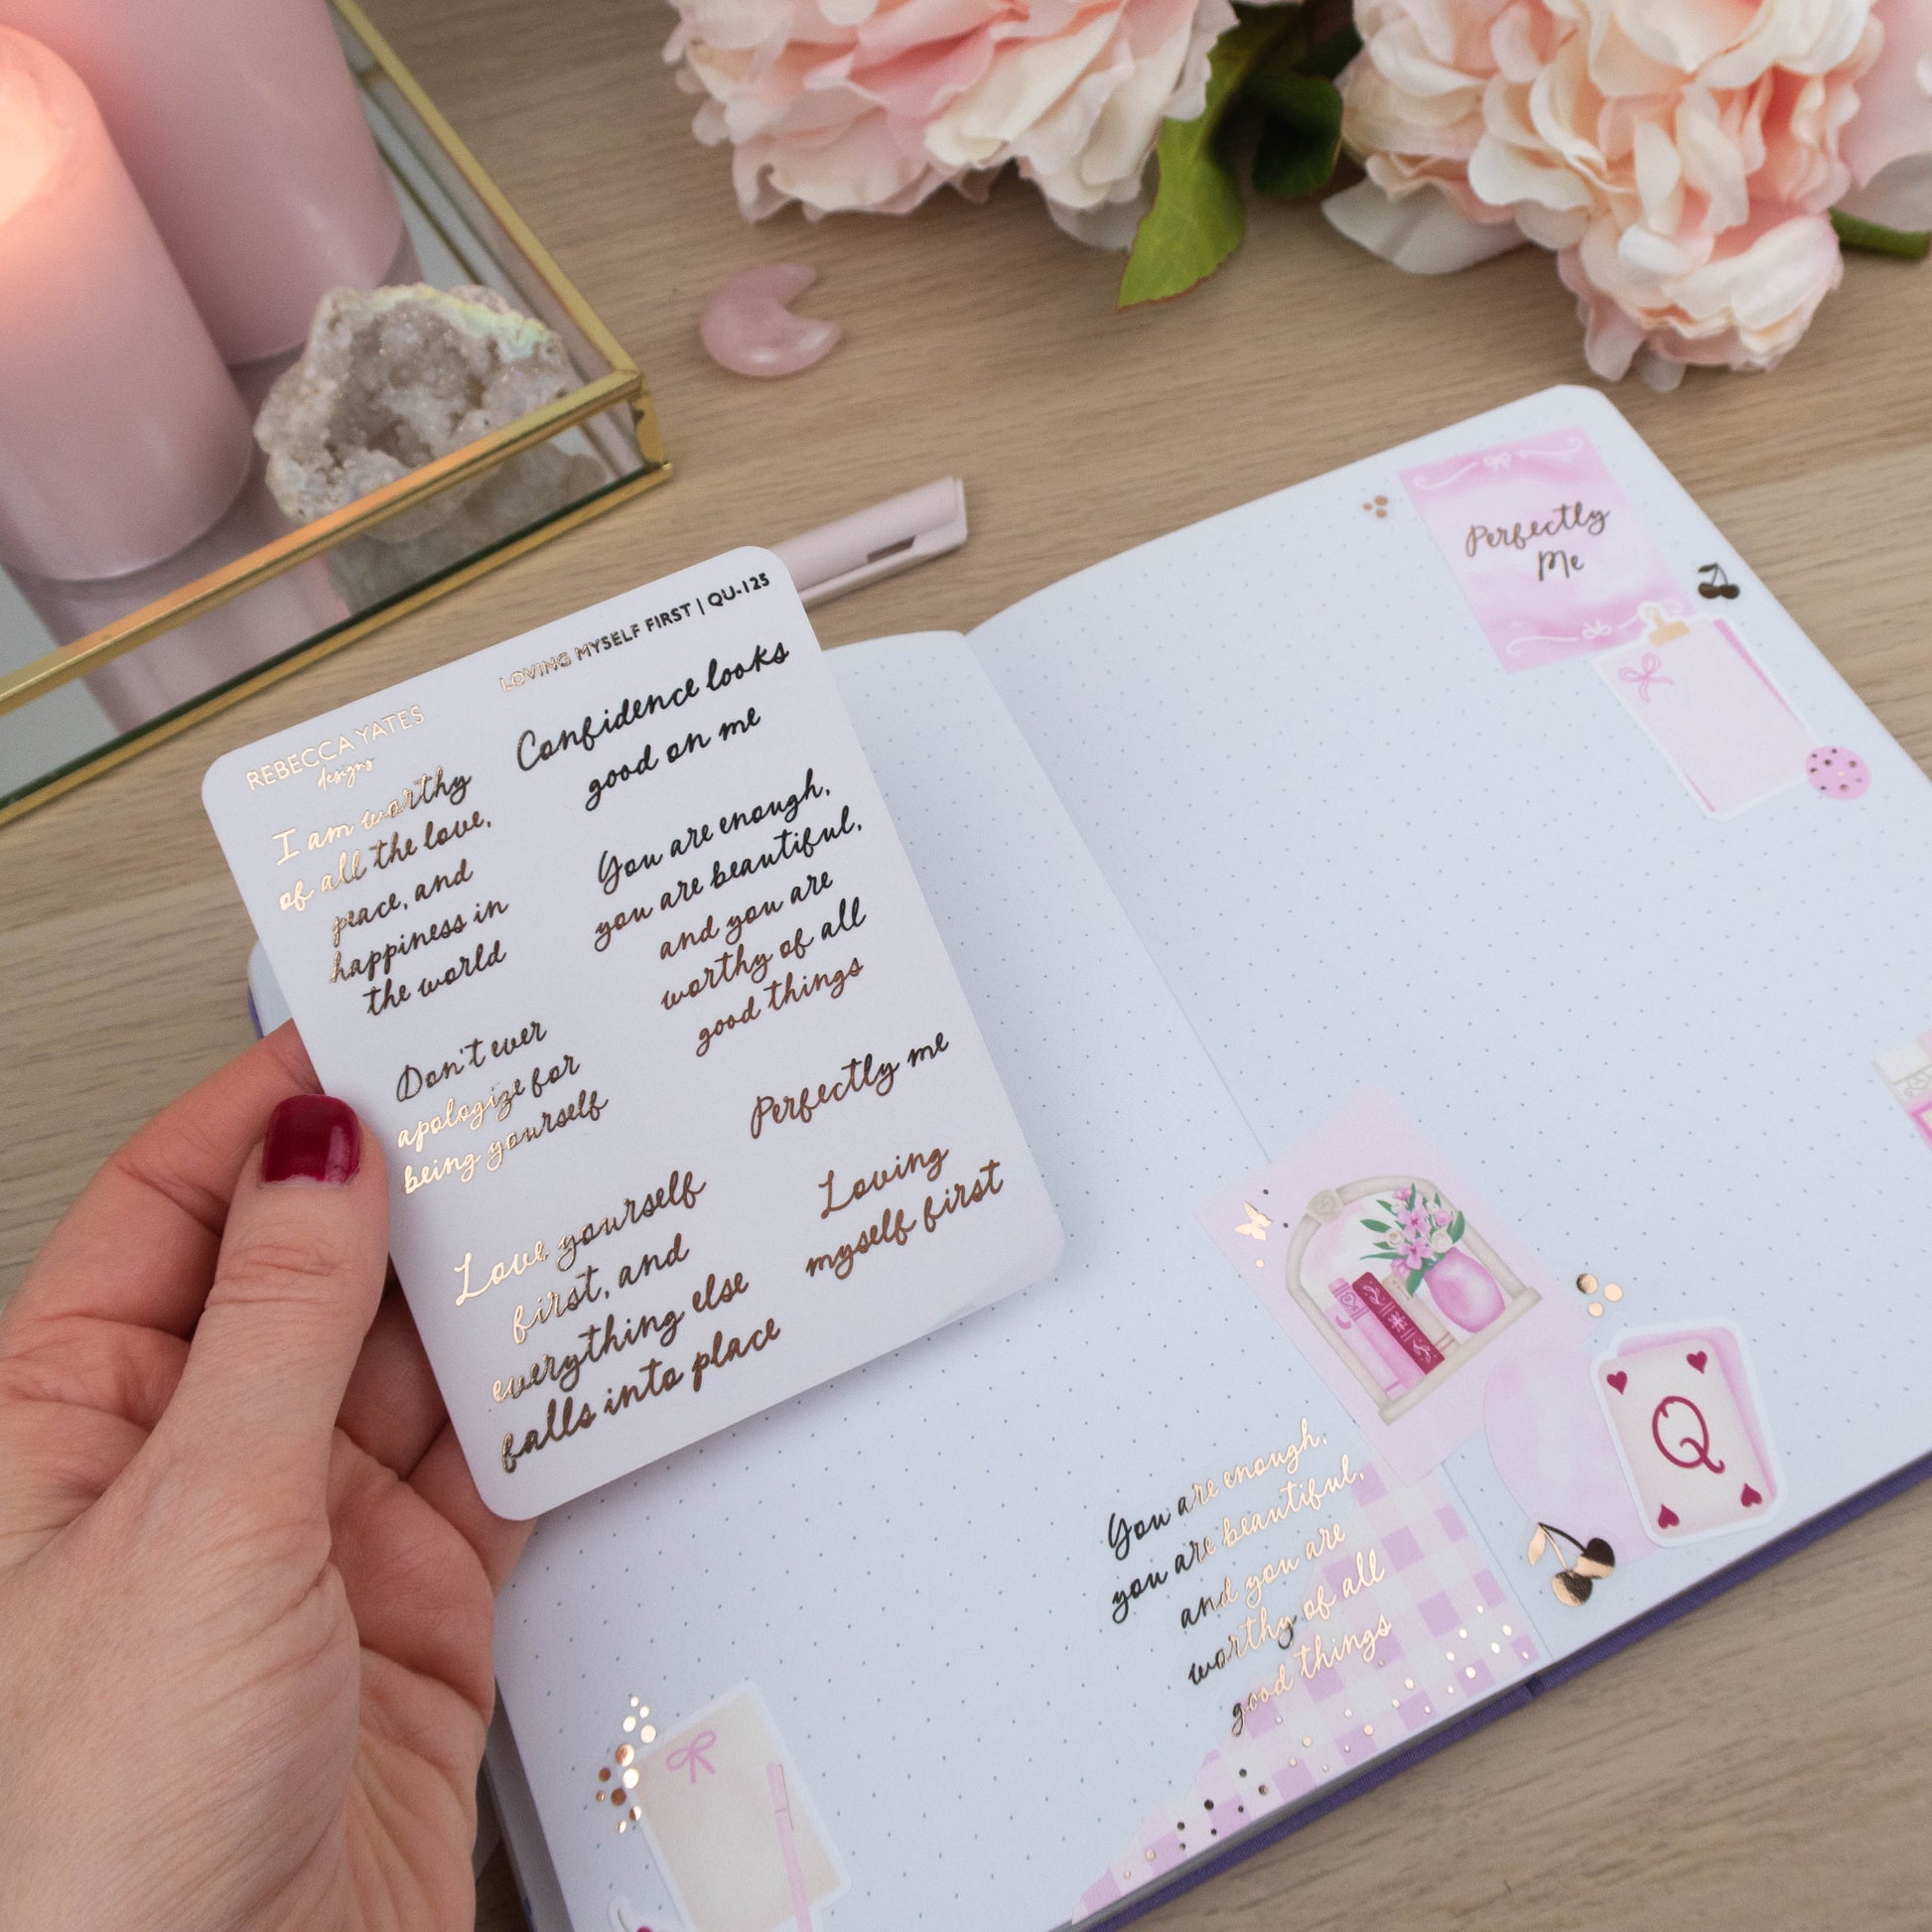 REBECCA YATES
designs
LOVING MYSELF FIRST | QU-125
I am worthy
of all the love,
peace, and
happiness in
the world
Don't ever
apologize for
being yourself
Love yourself
first, and
everything else
falls into place
Confidence looks
good on me
You are enough,
you are beautiful,
and you are
worthy of all
good things
Perfectly me
Loving
myself first
Perfectly
Me
You are enough,
you are beautiful,
and you are
worthy of all
good things
Q